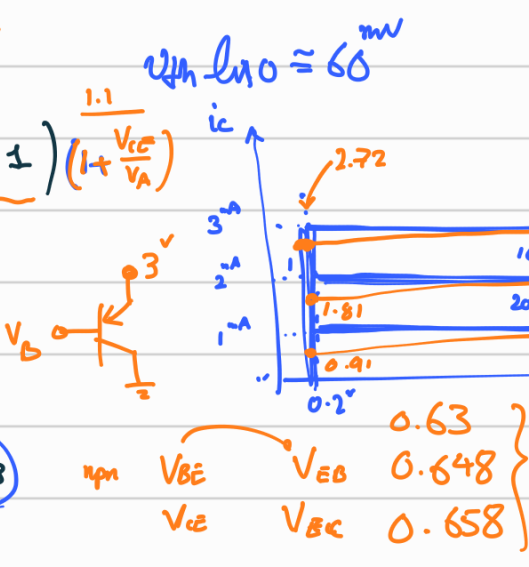 ln 10 ≅ 60 mV
1.1
1) (1 + VCE/VA)
ic
2.72
3 mA
2 mA
1 mA
1.81
0.91
20
0.2 v
3 v
VB
npn VBE VEB
VCE VEC
0.63
0.648
0.658